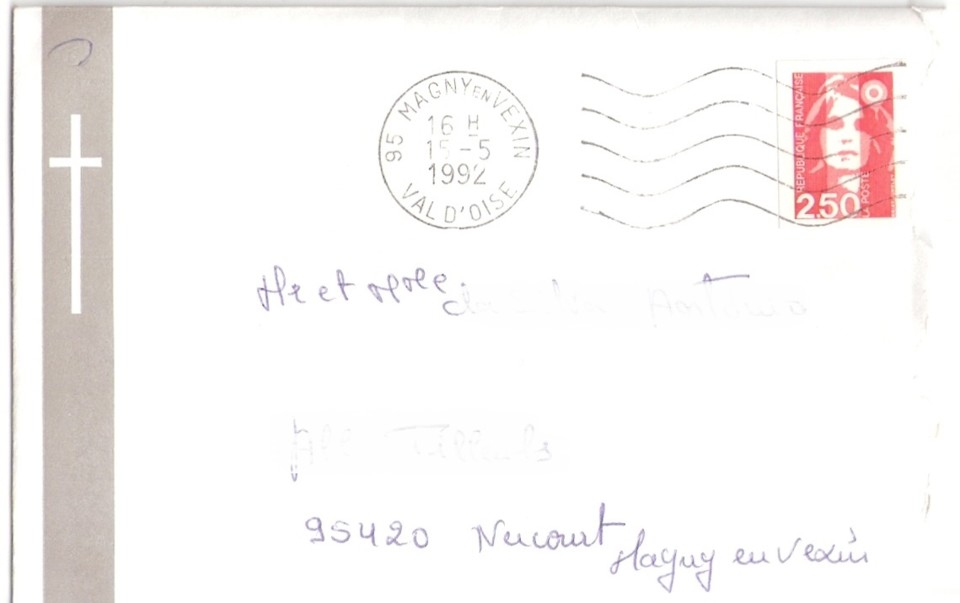 95 MAGNY EN VEXIN
16 H
15-5
1992
VAL D'OISE
RÉPUBLIQUE FRANÇAISE
2,50
LA POSTE
Mr et Mme Antonio
Tilleuls
95420 Nucourt
Magny en Vexin